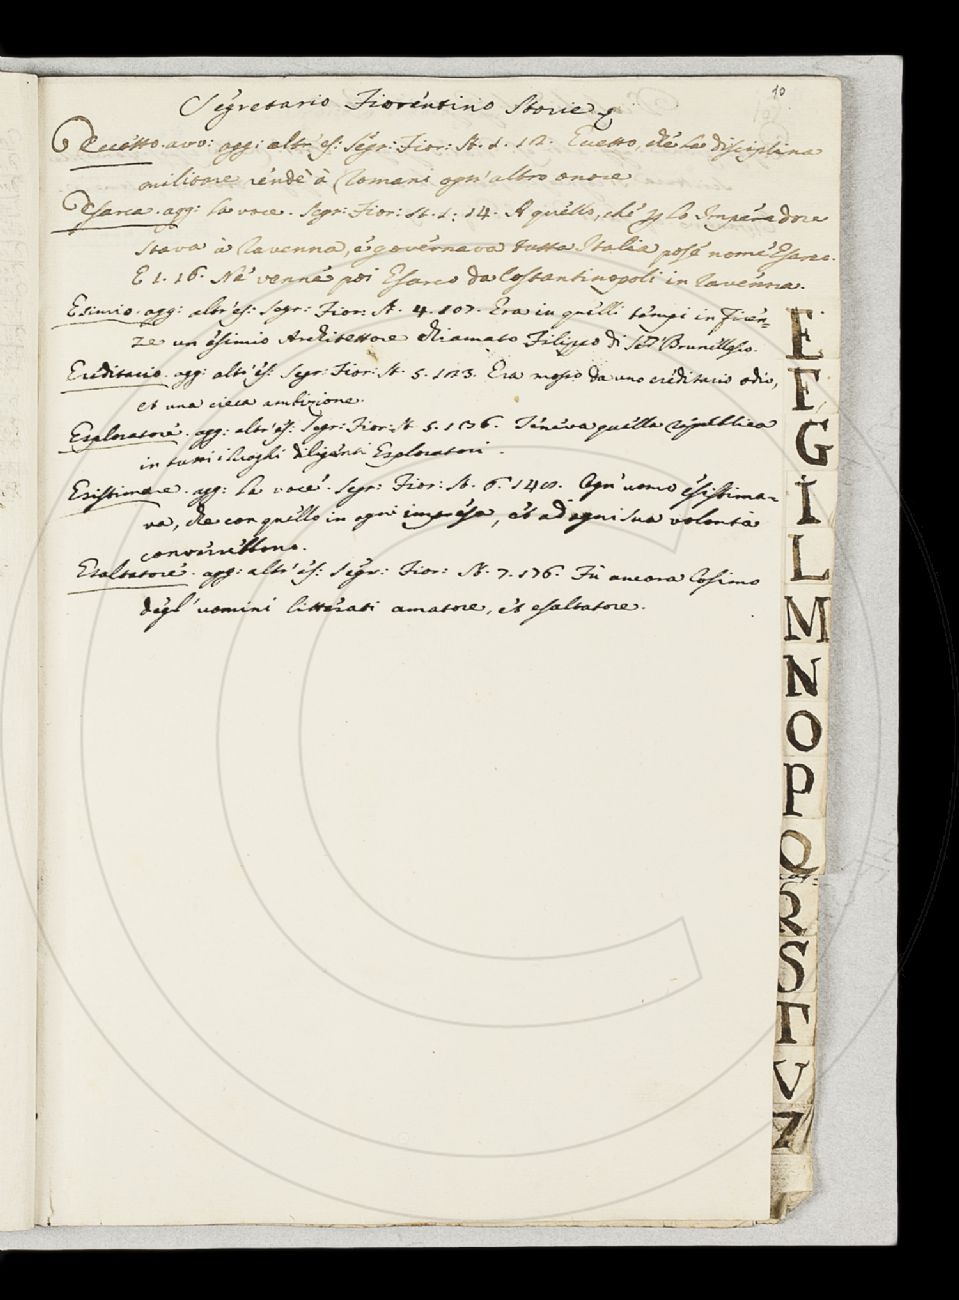 10
Segretario Fiorentino Storie
Eccetto. avv: agg: altr' es: Segr: Fior: St. 1. 12. Eccetto, che la disciplina
militare rendè à Romani ogn' altro onore
Esarca. agg: la voce. Segr: Fior: St: 1. 14. A quello, che p lo Imperadore
stava à Ravenna, e governava tutta Italia pose nome Esarco.
E 1. 16. Né venne poi Esarco da Costantinopoli in Ravenna.
Esimio. agg: altr' es: Segr: Fior: St. 4. 107. Era in quelli tempi in Firen-
ze un esimio Architettore chiamato Filippo di Ser Brunellesco.
Ereditario. agg: altr' es: Segr: Fior: St. 5. 123. Era mosso da uno ereditario odio,
et una cieca ambizione.
Esploratore. agg: altr' es: Segr: Fior: St. 5. 136. Teneva quella republica
in tutti i luoghi diligenti Esploratori.
Esistimare. agg: la voce. Segr: Fior: St. 6. 140. Ogn' uomo esistima-
va, che con quello in ogni impresa, et ad ogni sua volontà
converrebbono.
Esaltatore. agg: altr' es: Segr: Fior: St. 7. 176. Fù ancora Cosimo
degl' uomini litterati amatore, et esaltatore.
E
F
G
I
L
M
N
O
P
Q
R
S
T
V
Z